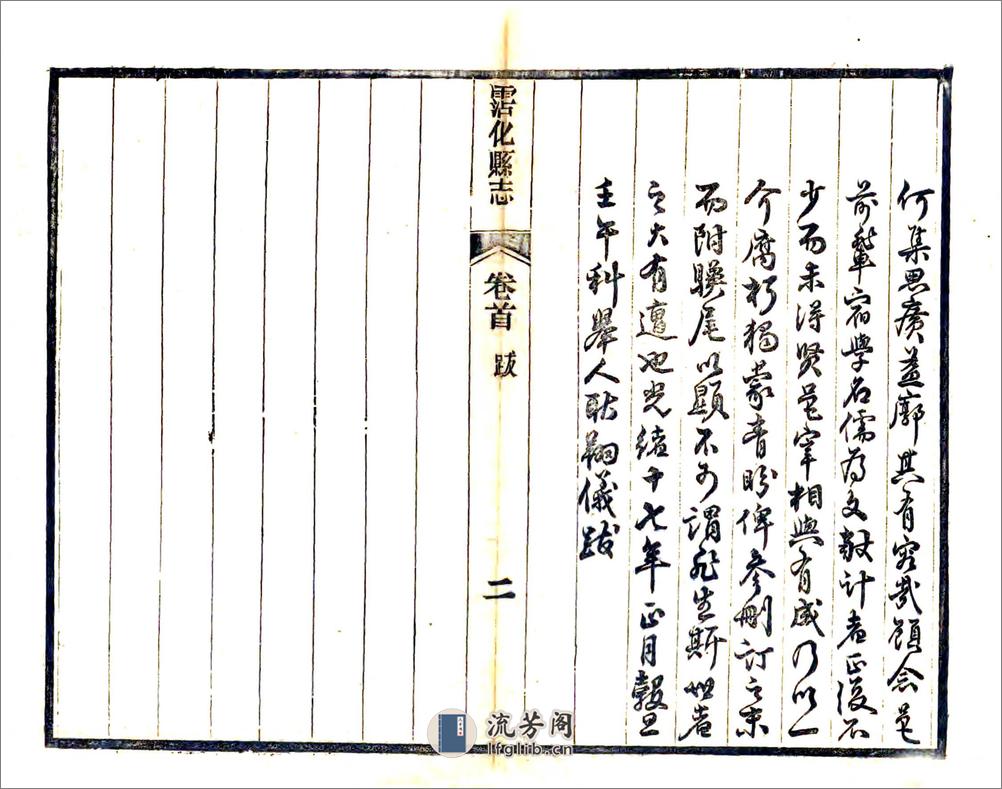 何集思廣益廓其有容哉顧念邑
前輩宿學名儒為文獻計者正復不
少而未得賢邑宰相與有成乃以一
介腐朽獨蒙青盼俾參刪訂之末
而附驥尾以顯不可謂非生斯世者
之大有遭也光緒十七年正月穀旦
壬午科舉人耿翔儀跋
霑化縣志
卷首
跋
二
流芳阁
lfglib.cn